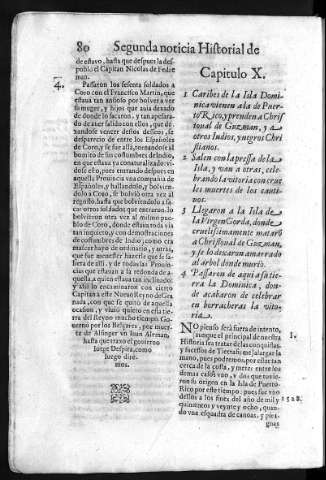 80 Segunda noticia Historial de
de estuvo, hasta que despues la des-
poblò el Capitan Nicolas de Fedre
man.
4. Passaron los sesenta soldados a
Coro con el Francisco Martin, que
estava tan ansioso por bolver a ver
su muger, y hijos, que avia dexado
de donde lo sacaron, y tan apesara-
do de aver salido con ellos, que de-
xandose vencer destos desseos, se
desparecio de entre los Españoles de
Coro, y se fue allà, tornandose al
bomito de sus costumbres de Indio,
en que estava ya connaturalizado: vi-
dose esto, pues entrando despues en
aquella Provincia una compañia de
Españoles, y hallandolo, y bolvien-
dolo a Coro, se bolviò otra vez al
regosto, hasta que bolviendolo a sa-
car otros soldados que entraron, lo
bolvieron otra vez al mismo pueblo
de Coro, donde estava toda via
tan inquieto, y con demostraciones
de costumbres de Indio, como era
mascar hayo de ordinario, y otras,
que fue menester hazerle que se sa-
liera de allì, y de todas las Provin-
cias que estavan a la redonda de a-
quella, a quien estavan inquietando,
y assi lo remitieron con cierto
Capitan a este Nuevo Reyno de Gra-
nada, con que se quitò de aquella
ocasion, y viviò quieto en esta tie-
rra del Reyno mucho tiempo. Go-
vernò por los Belzares, por muer-
te de Alfinger un Iuan Aleman,
hasta que traxo el govierno
Iorge Despira, como
luego dire-
mos.
Capitulo X.
1 Caribes de la Isla Domi-
nica vienen a la de Puer-
to Rico, y prenden a Chris-
tonal de Guzman, y a
otros Indios, y negros Chri-
stianos.
2 Salen con la pressa de la
Isla, y van a otras, cele-
brando la vitoria con crue
les muertes de los cauti-
vos.
3 Llegaron a la Isla de
la Virgen Gorda, donde
cruelissimamente mataron
a Christonal de Guzman,
y se lo dexaron amarrado
al arbol donde murió.
4 Passaron de aqui a su tie-
rra la Dominica, don-
de acabaron de celebrar
en borracheras la vito-
ria.
NO pienso serà fuera de intento,
1.
aunque el principal de nuestra
Historia sea tratar de las conquistas,
y sucessos de Tierrafirme, alargar la
mano, pues podremos, por estar tan
cerca de la costa, y meter entre los
demas casos uno, y dos que tuvie-
ron su origen en la Isla de Puerto-
Rico por este tiempo, pues fue uno
dellos a los fines del año de mil y
1528.
quinientos y veynte y ocho, quan-
do una esquadra de canoas, y pira-
guas